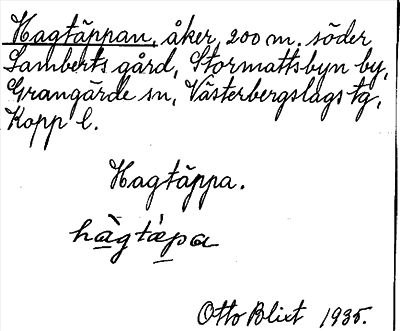 Hagtäppan, åker, 200 m. söder
Lamberts gård, Stormattsbyn by,
Grangärde sn, Västerbergslags tg,
Kopp l.
Hagtäppa.
hàgtäpa
Otto Blixt 1935.